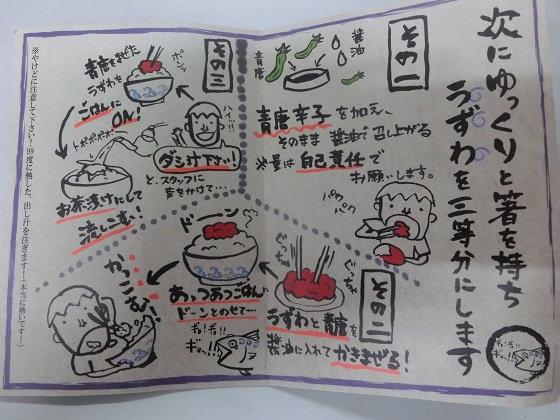 次にゆっくりと箸を持ち
うずわを三等分にします
その一
醤油
青唐
青唐辛子を加え、
そのまま醤油で召し上がる
※量は自己責任で
お願いします。
パクパク
その二
ぐっちゃ
ぐっちゃ
うずわと青唐を
醤油に入れてかきまぜる!
ドーン
あっつあつごはん
ドーンとのせて…
かっこむ!
ギョ!ギョ!
ギョッ!!
その三
ポンッ
青唐をまぜた
うずわを
ごはんに
ON!
ハイッ!!
ダシ汁下さい!
と、スタッフに
声をかけて…
トポポポポ…
お茶漬けにして
流しこむ!
※やけどに注意して下さい!99度に熱した、出し汁を注ぎます!(本当に熱いです!)
ギョ!ギョ!
ギョッ!!